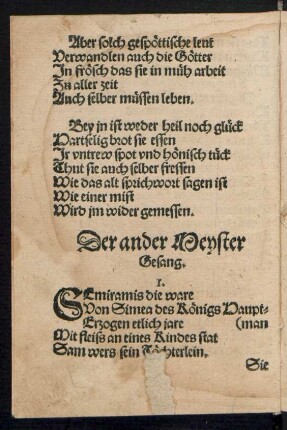 Aber solch gespöttische leut
Verwandlen auch die Götter
In frösch das sie in müh arbeit
Zů aller zeit
Auch selber müssen leben.
Bey jn ist weder heil noch glück
Hartselig brot sie essen
Ir vntrew spot vnd hönisch tück
Thut sie auch selber fressen
Wie das alt sprichwort sagen ist
Wie einer mist
Wird jm wider gemessen.
Der ander Meyster
Gesang.
1.
SEmiramis die ware
Von Simea des Königs Haupt-
Erzogen etlich jare (man
Mit fleiss an eines Kindes stat
Sam wers sein Töchterlein.
Sie